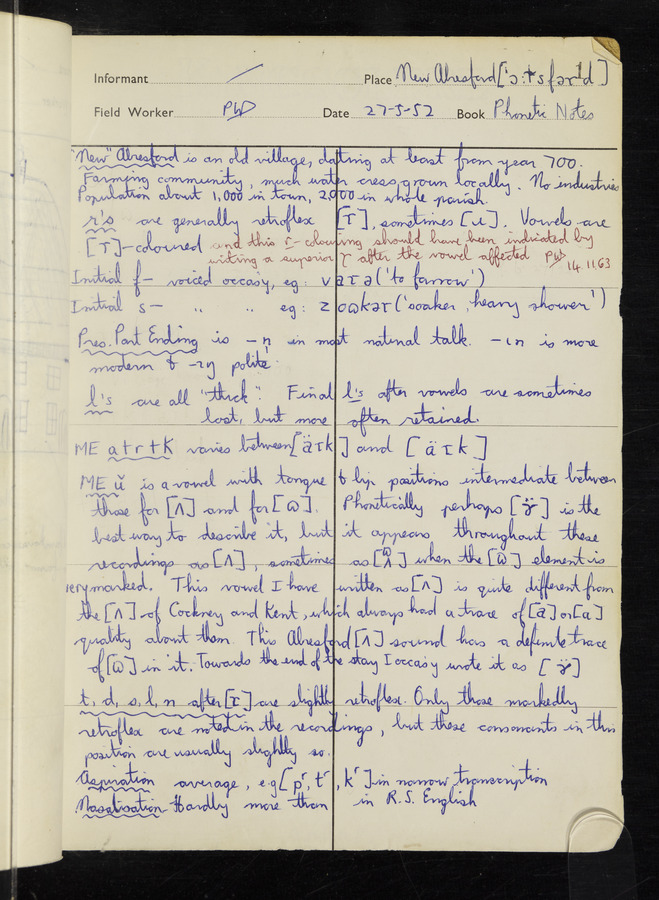 Informant Place New Alresford [
Field Worker PWD Date 27-5-52 Book Phonetic Notes
"New" Alresford is an old village, dating at least from year 700.
Farming community, much water cress grown locally. No industries
Population about 1,000 in town, 2,000 in whole parish.
r's are generally retroflex [ɽ], sometimes [ɹ]. Vowels are
[ɽ]-coloured and this r-colouring should have been indicated by
writing a superior r after the vowel affected PWD 14.11.63
Initial f- voiced occasy, eg: ('to farrow')
Initial s- " " eg: ('soaker, heavy shower')
Pres. Part Ending is -n in most natural talk. -ɩn is more
modern & polite.
l's are all "thick". Final l's after vowels are sometimes
lost, but more often retained.
ME a+r+k varies between [ ] and [ ]
ME ŭ is a vowel with tongue & lip positions intermediate between
those for [ʌ] and for [ɷ]. Phonetically perhaps [ɤ̈] is the
best way to describe it, but it appears throughout these
recordings as [ʌ], sometimes as [ ] when the [ɷ̈] element is
very marked. This vowel I have written as [ʌ] is quite different from
the [ʌ] of Cockney and Kent, which always had a trace of [a] or [ɑ]
quality about them. This Alresford [ʌ] sound has a definite trace
of [ɷ̈] in it. Towards the end of the stay I occasy wrote it as [ɤ̈]
t, d, s, l, n after [ɽ] are slightly retroflex. Only those markedly
retroflex are noted in the recordings, but these consonants in this
position are usually slightly so.
Aspiration average, e.g. [pʻ, tʻ, kʻ] in narrow transcription
Nasalisation Hardly more than in R.S. English